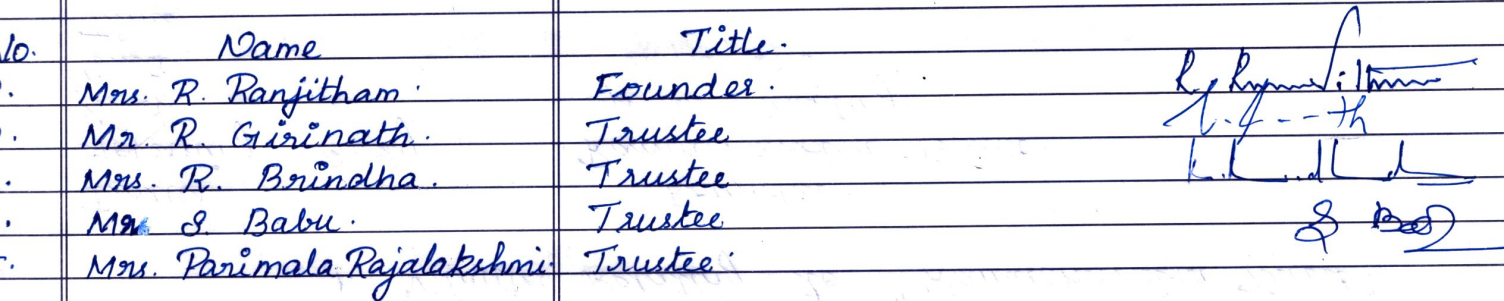 No. Name Title.
Mrs. R. Ranjitham. Founder.
Mr. R. Girinath. Trustee
Mrs. R. Brindha. Trustee
Mr. S. Babu. Trustee
Mrs. Parimala Rajalakshmi Trustee.